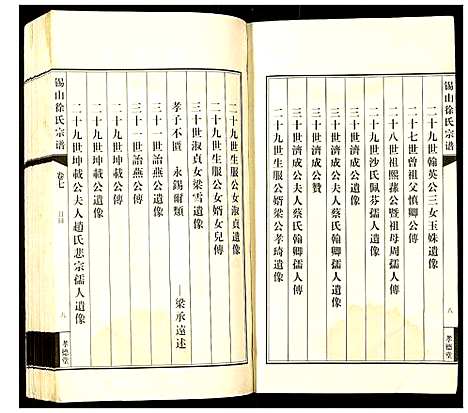 二十九世翰英公三女玉姝遺像
二十七世曾祖父慎卿公傳
二十八世祖熙蓀公暨祖母周孺人傳
二十九世沙氏佩芬孺人遺像
三十世濟成公遺像
三十世濟成公贊
三十世濟成公夫人蔡氏翰卿孺人遺像
三十世濟成公夫人蔡氏翰卿孺人傳
二十九世生服公婿梁公孝琦遺像
八
孝德堂
錫山徐氏宗譜
卷七
目錄
八
孝德堂
二十九世生服公女淑貞遺像
二十九世生服公女婿女兒傳
三十世淑貞女梁雪遺像
孝子不匱 永錫爾類
——梁承遠述
三十一世詒燕公遺像
三十一世詒燕公傳
二十九世坤載公遺像
二十九世坤載公傳
二十九世坤載公夫人趙氏悲宗孺人遺像
錫山徐氏宗譜